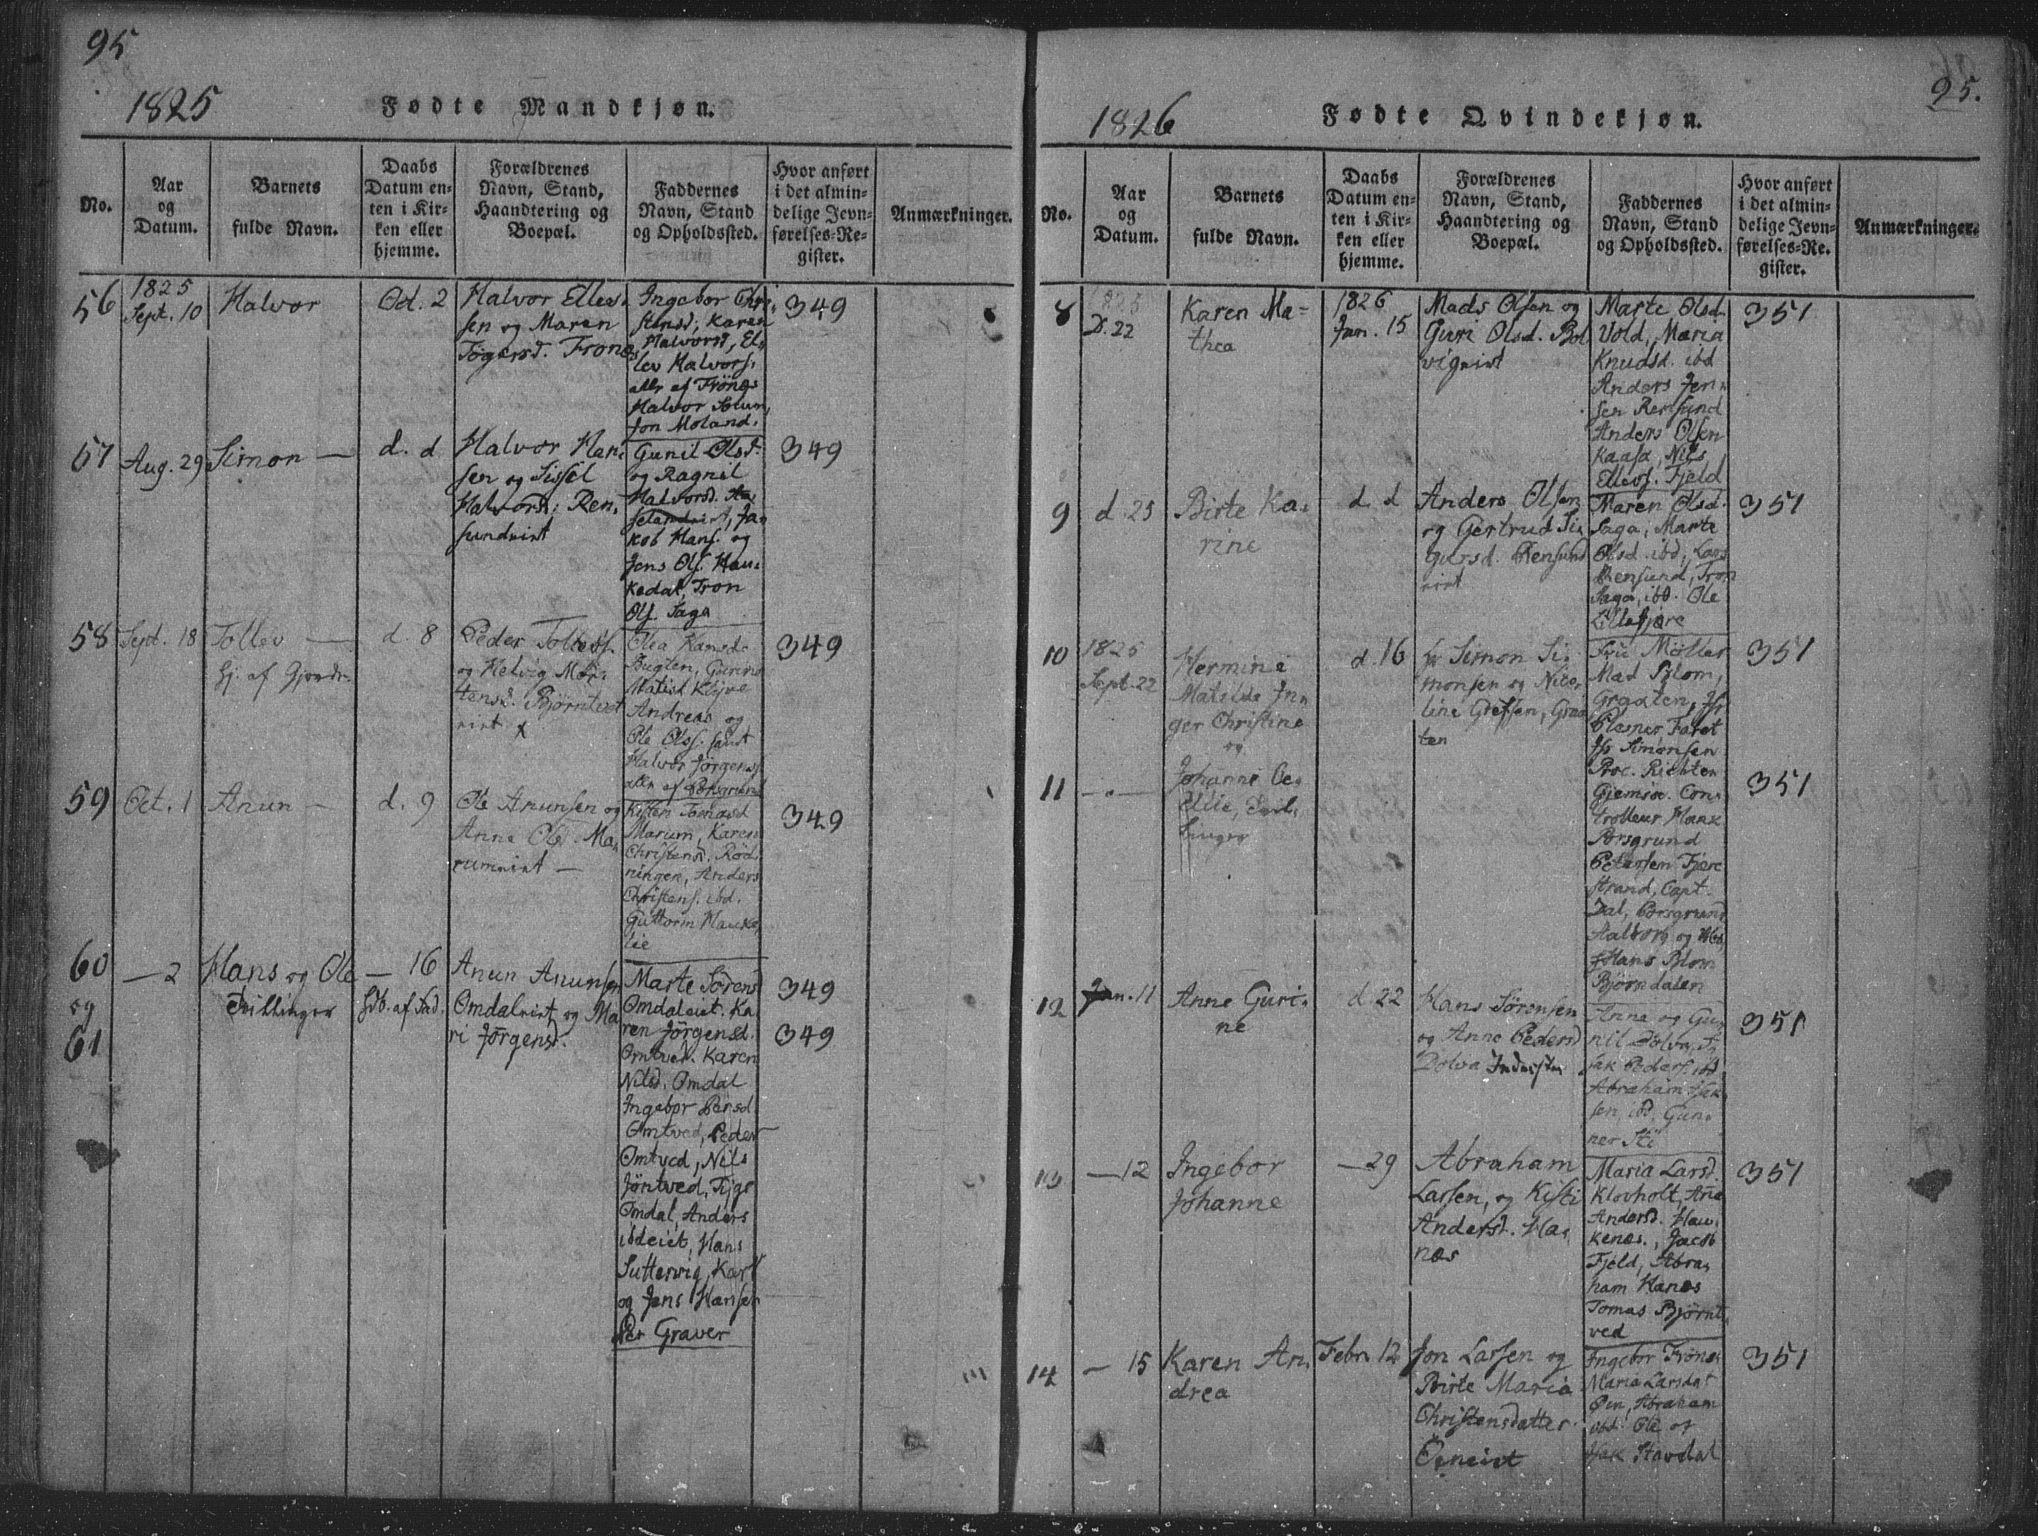 95
1825
Fødte Mandkjøn.
No.
Aar
og
Datum.
Barnets
fulde Navn.
Daabs
Datum en-
ten i Kir-
ken eller
hjemme.
Forældrenes
Navn, Stand,
Haandtering og
Boepæl.
Faddernes
Navn, Stand
og Opholdssted.
Hvor anført
i det almin-
delige Jevn-
førelses-Re-
gister.
Anmærkninger.
56
1825
Sept. 10
Halvor
Oct. 2
Halvor Ellevs-
sen og Maren
Tögersd. Frones
Ingebor Chri-
stensd, Karen
Halvorsd, El-
lev Halvors.
alle af Frönes
Halvor
Jon Moland.
349
57
Aug. 29
Simon —
d. d
Halvor Han-
sen og Sissel
Halvorsd. Ren-
sundeiet
Gunil Olsd.
og Ragnil
Halvorsd. Aa-
selandeiet, Ja-
kob Hans. og
Jens Ols. Hau-
kedal, Tron
Ols. Saga
349
58
Sept. 18
Tollev —
hj. af Gjerdr.
d. 8
Peder Tollefs.
og Helvig Mor-
tensd. Bjørntvet
eiet
Olea Hansd.
Bugten, Gurine
Matisd Klyve
Andreas og
Ole Olss. samt
Halvor Jörgens.
alle af Porsgrund
349
59
Oct. 1
Anun —
d. 9
Ole Anunsen og
Anne Olsd. Ma-
rumeiet —
Kisten Tomasd
Marum, Karen
Christensd. Röd-
ningen, Anders
Christens. ibd.
Guttorm Hauke-
lie
349
60
og
61
— 2
Hans og Ole
Tvillinger
— 16
hdb. af Fad.
Anun Anunsen
Omdaleiet og Ma
ri Jörgensd.
Marte Sörens
Omdaleiet. Ka-
ren Jörgensd.
Omtved. Karen
Nilsd. Omdal
Ingebor Persd.
Omtved, Peder
Omtved, Nils
Jöntved, Tjge
Omdal, Anders
ibdeiet, Hans
Suttervig, Karl
og Jens Hansen
Per Graver
349
349
95.
1826
Fødte Qvindekjøn.
No.
Aar
og
Datum.
Barnets
fulde Navn.
Daabs
Datum en-
ten i Kir-
ken eller
hjemme.
Forældrenes
Navn, Stand,
Haandtering og
Boepæl.
Faddernes
Navn, Stand
og Opholdssted.
Hvor anført
i det almin-
delige Jevn-
førelses-Re-
gister.
Anmærkninger.
8
1825
D. 22
Karen Ma-
thea
1826
Jan. 15
Mads Olsen og
Guri Olsd. Bol
vigeiet
Marte Olsd.
Vold, Maria
Knudsd. ibd
Anders Jen-
sen Rensund
Anders Olsen
Kaasa, Nils
Ellevs. Fjeld
351
9
d. 25
Birte Ka-
rine
d. d
Anders Olsen
og Gertrud Si-
gursd. Rensund
eiet
Maren Olsd.
Saga, Marte
Olsd. ibd, Lars
Rensund, Tron
Saga, ibd. Ole
Lillefjære
351
10
1825
Sept. 22
Hermine
Matilde In-
ger Christine
og
d. 16
hr Simon Si-
monsen og Nico-
line Grefsen, Graa
ten
Fru Möller
Mad Blom,
Graaten, Hr
Plesner Faret
Hr Simonsen
Proc. Richter
Gjemsøe. Con-
trolleur Haax
Porsgrund
Petersen Fjære
strand, Capt.
Dal, Porsgrund
Aalborg og
Hans Blom
Bjørndalen
351
11
— . —
Johanne Ce-
cilie, Tvil-
linger
351
12
Jan. 11
Anne Guri-
ne
d. 22
Hans Sörensen
og Anne Pedersd
Dolva Inderster
Anne og Gu-
nil Dolva, I-
sak Peders. ibd
Abraham Isak-
sen, ibd. Gun-
ner Sti
351
13
— 12
Ingebor
Johanne
— 29
Abraham
Larsen, og Kisti
Andersd. Ha-
næs
Maria Larsd.
Klovholt, Ane
Andersd. Hau-
kenæs, Jacob
Fjeld, Abra-
ham Hanæs
Tomas Bjørnt-
ved
351
14
— 15
Karen An-
drea
Febr. 12
Jon Larsen og
Birte Maria
Christensdatter
Öeneiet
Ingebor Frönes
Maria Larsdat
Öen, Abraham
ibd. Ole og
Isak Stavdal
351